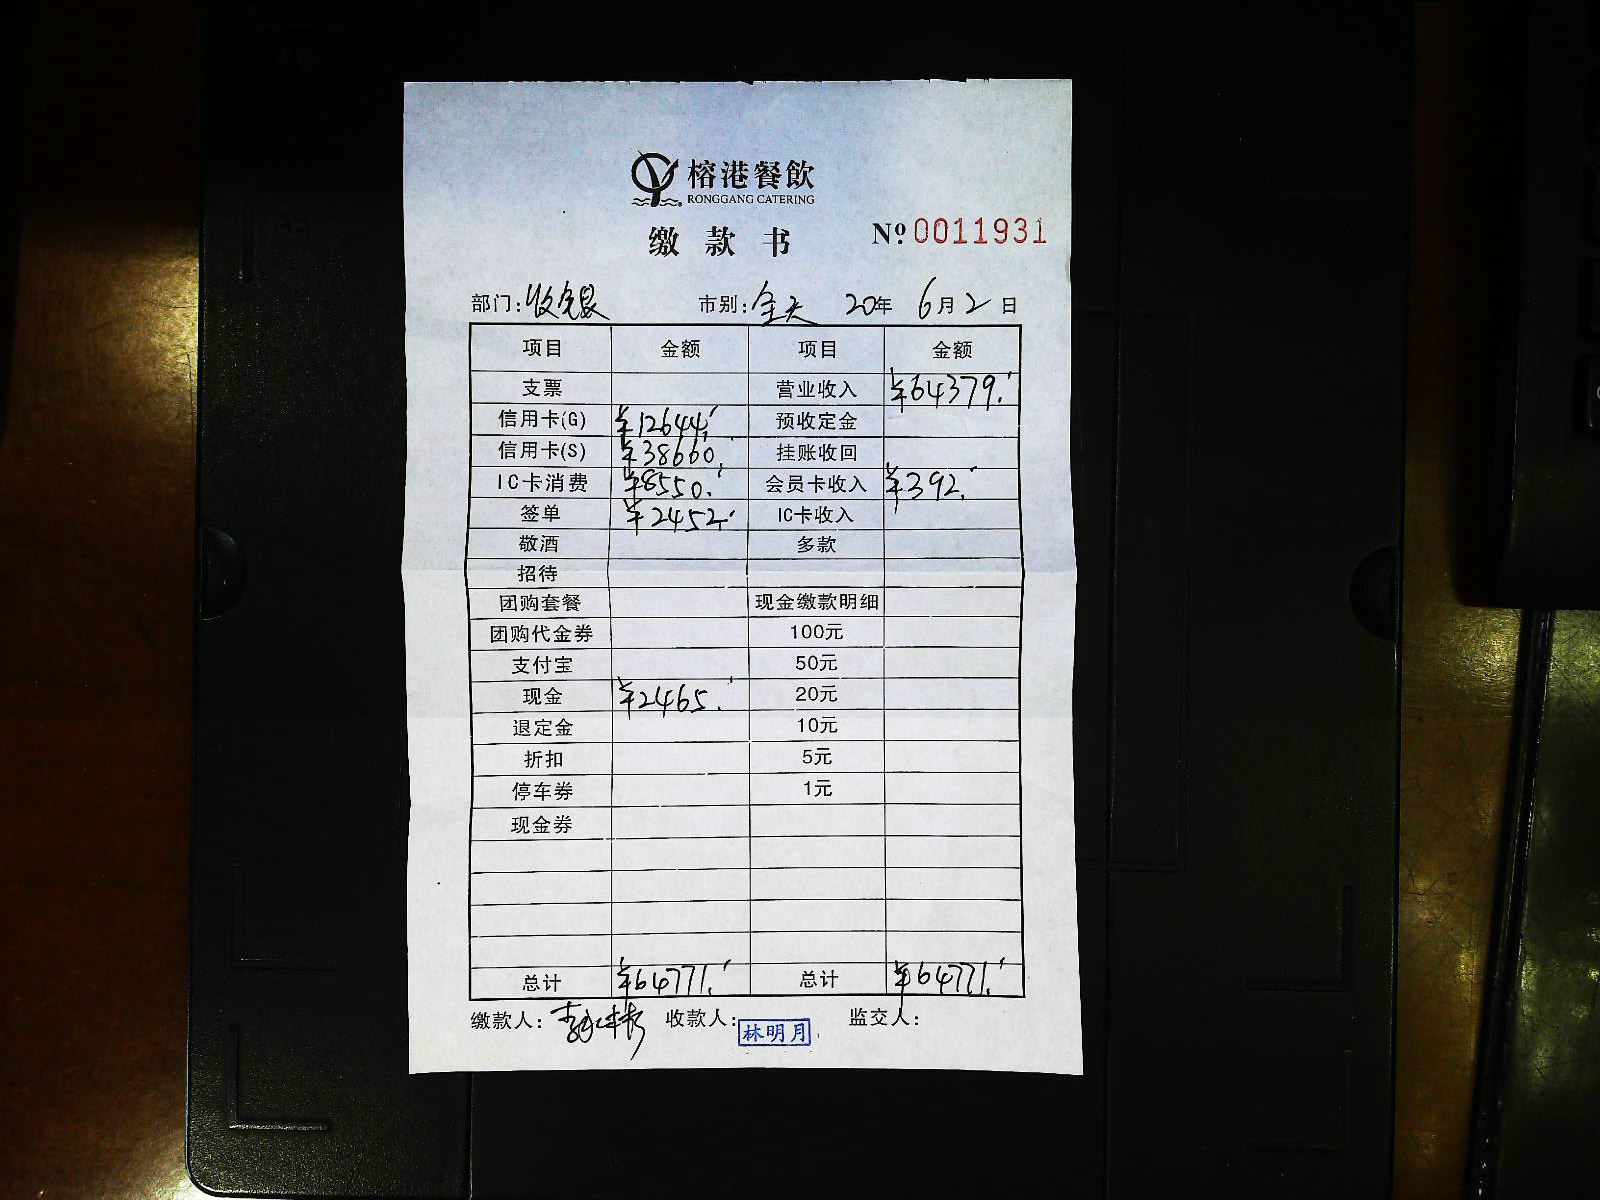 榕港餐飲
RONGGANG CATERING
缴款书 Nº 0011931
部门: 收银 市别: 全天 20年 6月2日
项目 金额 项目 金额
支票 营业收入 ¥64379.
信用卡(G) ¥12644. 预收定金
信用卡(S) ¥38660. 挂账收回
IC卡消费 ¥8550. 会员卡收入 ¥392.
签单 ¥2452. IC卡收入
敬酒 多款
招待
团购套餐 现金缴款明细
团购代金券 100元
支付宝 50元
现金 ¥2465. 20元
退定金 10元
折扣 5元
停车券 1元
现金券
总计 ¥64771. 总计 ¥64771.
缴款人: 收款人: 林明月 监交人: